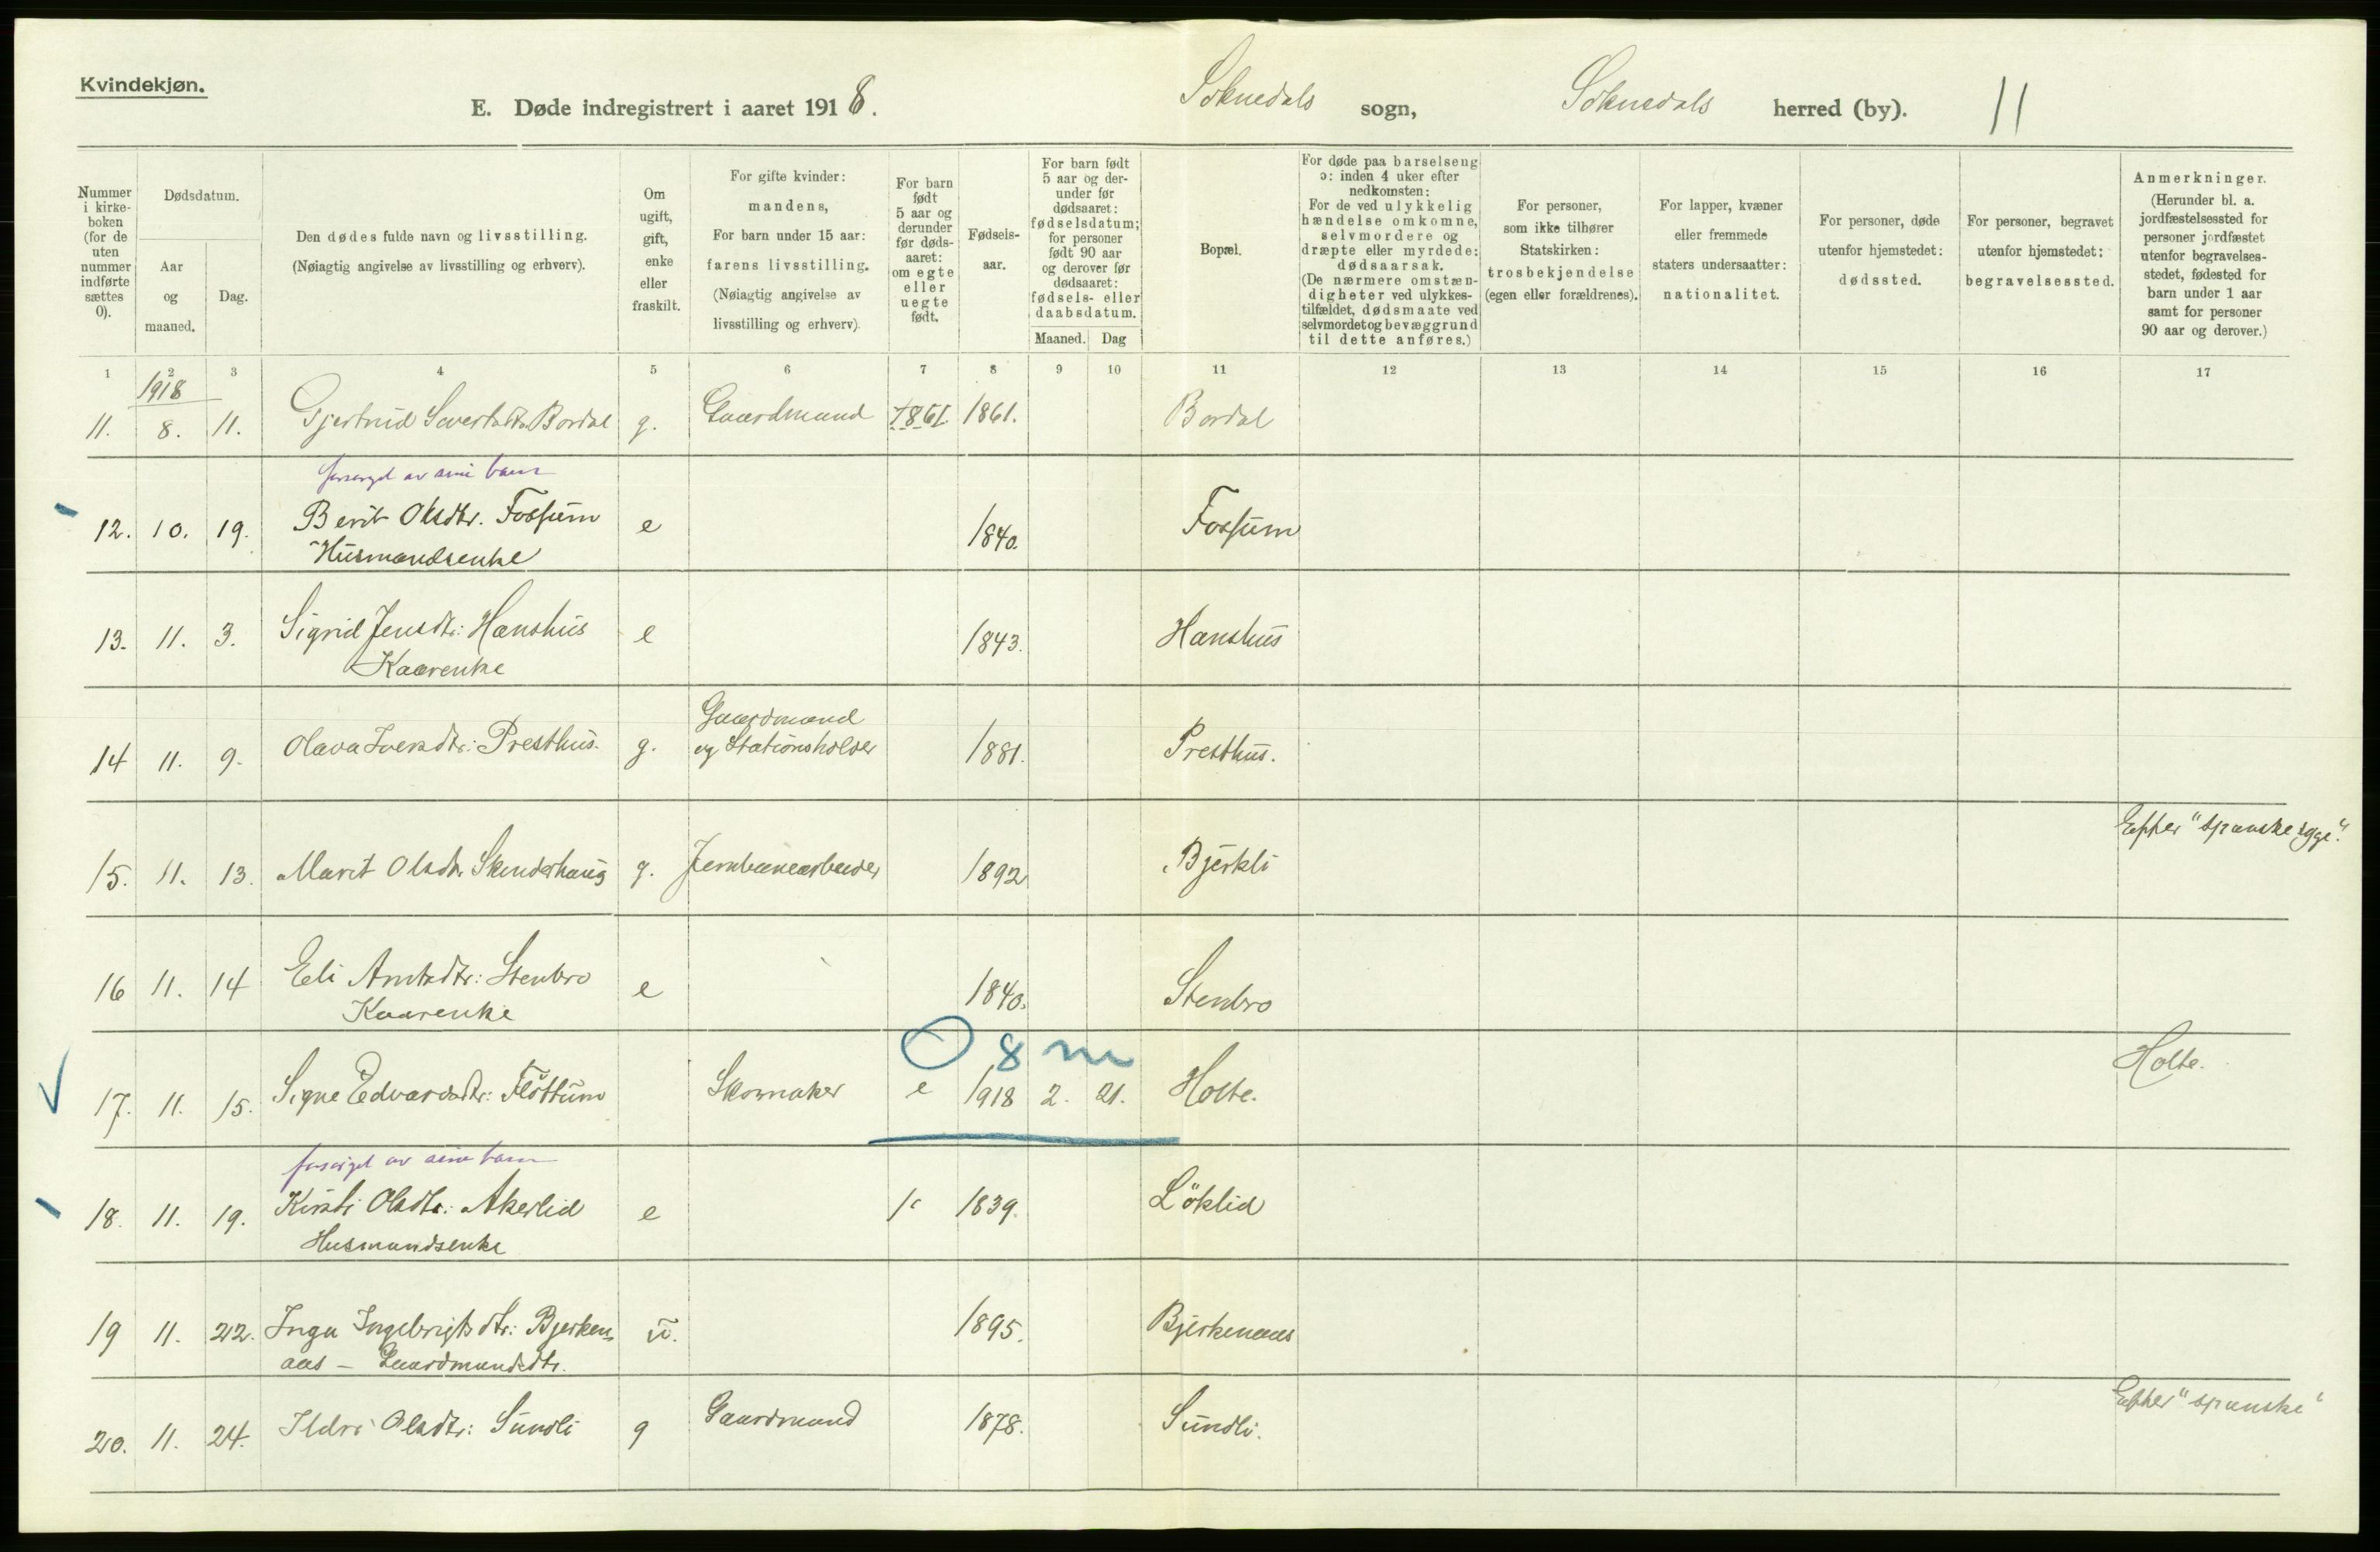 Kvindekjøn.
E. Døde indregistrert i aaret 1918. Soknedals sogn, Soknedals herred (by). 11
Nummer i kirke-boken (for de uten nummer indførte sættes 0).
Dødsdatum.
Aar og maaned.
Dag.
Den dødes fulde navn og livsstilling.
(Nøiagtig angivelse av livsstilling og erhverv).
Om ugift, gift, enke eller fraskilt.
For gifte kvinder: mandens,
For barn under 15 aar: farens livsstilling.
(Nøiagtig angivelse av livsstilling og erhverv).
For barn født 5 aar og derunder før døds-aaret: om egte eller uegte født.
Fødsels-aar.
For barn født 5 aar og der-under før dødsaaret: fødselsdatum; for personer født 90 aar og derover før dødsaaret: fødsels- eller daabsdatum.
Maaned. Dag
Bopæl.
For døde paa barselseng ɔ: inden 4 uker efter nedkomsten:
For de ved ulykkelig hændelse omkomne, selvmordere og dræpte eller myrdede: dødsaarsak.
(De nærmere omstæn-digheter ved ulykkes-tilfældet, dødsmaate ved selvmordet og bevæggrund til dette anføres.)
For personer, som ikke tilhører Statskirken: trosbekjendelse (egen eller forældrenes).
For lapper, kvæner eller fremmede staters undersaatter: nationalitet.
For personer, døde utenfor hjemstedet: dødssted.
For personer, begravet utenfor hjemstedet: begravelsessted.
Anmerkninger.
(Herunder bl. a. jordfæstelsessted for personer jordfæstet utenfor begravelses-stedet, fødested for barn under 1 aar samt for personer 90 aar og derover.)
1 2 3 4 5 6 7 8 9 10 11 12 13 14 15 16 17
1918
11. 8. 11. Gjertrud Bordal g. Gaardmand 1861. Bordal
forsørget av sine barn
12. 10. 19. Berit Olsdtr. Fossum e 1840. Fossum
Husmandsenke
13. 11. 3. Sigrid Jensdtr: Hanshus e 1843. Hanshus
Kaarenke
Gaardmand
14 11. 9. Olava Iversdtr: Presthus. g. og Stationsholder 1881. Presthus.
Efther "spanske syge".
15. 11. 13. Marit Olsdtr. Skinderhaug g. Jernbanearbeider 1892 Bjerkli
16 11. 14 Eli Arntsdtr: Stenbro e 1840. Stenbro
Kaarenke
8 m
17. 11. 15. Signe Edvardsdtr: Fløttum Skomaker e 1918 2. 21. Holte. Holte.
forsørget av sine barn
18. 11. 19. Kirsti Olsdtr: Akerlid e 1839. Løklid
Husmandsenke
19 11. 22. Inga Ingebrigtsdtr: Bjerken- u. 1895. Bjerkenaas
aas - Gaardmandsdtr.
20. 11. 24. Ildri Olsdtr: Sundli g Gaardmand 1878. Sundli. Efther "spanske"